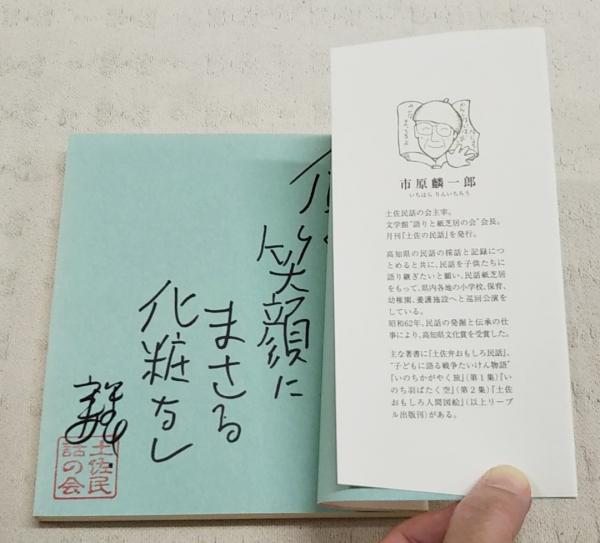 笑顔に
まさる
化粧なし
土佐民
話の会
市原麟一郎
いちはら りんいちろう
土佐民話の会主宰。
文学館“語りと紙芝居の会”会長。
月刊『土佐の民話』を発行。
高知県の民話の採話と記録につ
とめると共に、民話を子供たちに
語り継ぎたいと願い、民話紙芝居
をもって、県内各地の小学校、保育、
幼稚園、養護施設へと巡回公演を
している。
昭和62年、民話の発掘と伝承の仕
事により、高知県文化賞を受賞した。
主な著書に『土佐弁おもしろ民話』、
“子どもに語る戦争たいけん物語”
『いのちかがやく旅』(第1集)『い
のち羽ばたく空』(第2集)『土佐
おもしろ人間図絵』(以上リーブ
ル出版刊)がある。